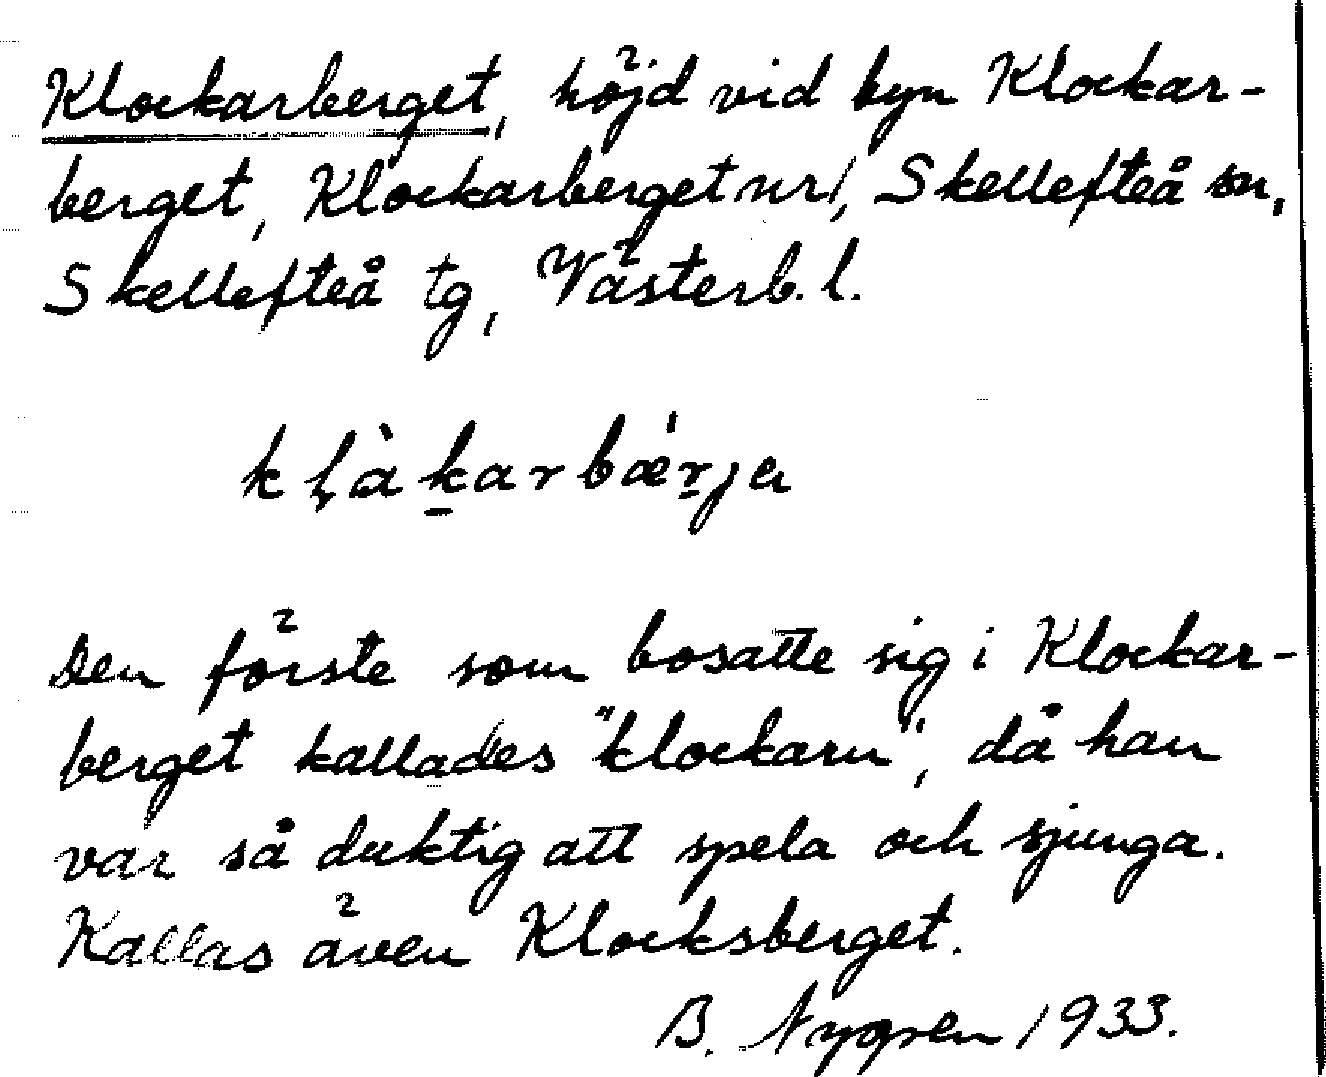 Klockarberget, höjd vid byn Klockar-
berget, Klockarberget nr 1, Skellefteå sn,
Skellefteå tg, Västerb. l.
kḷàk̠arbǽr̠ja
Den förste som bosatte sig i Klockar-
berget kallades "klockarn", då han
var så duktig att spela och sjunga.
Kallas även Klocksberget.
B. Nygren 1933.